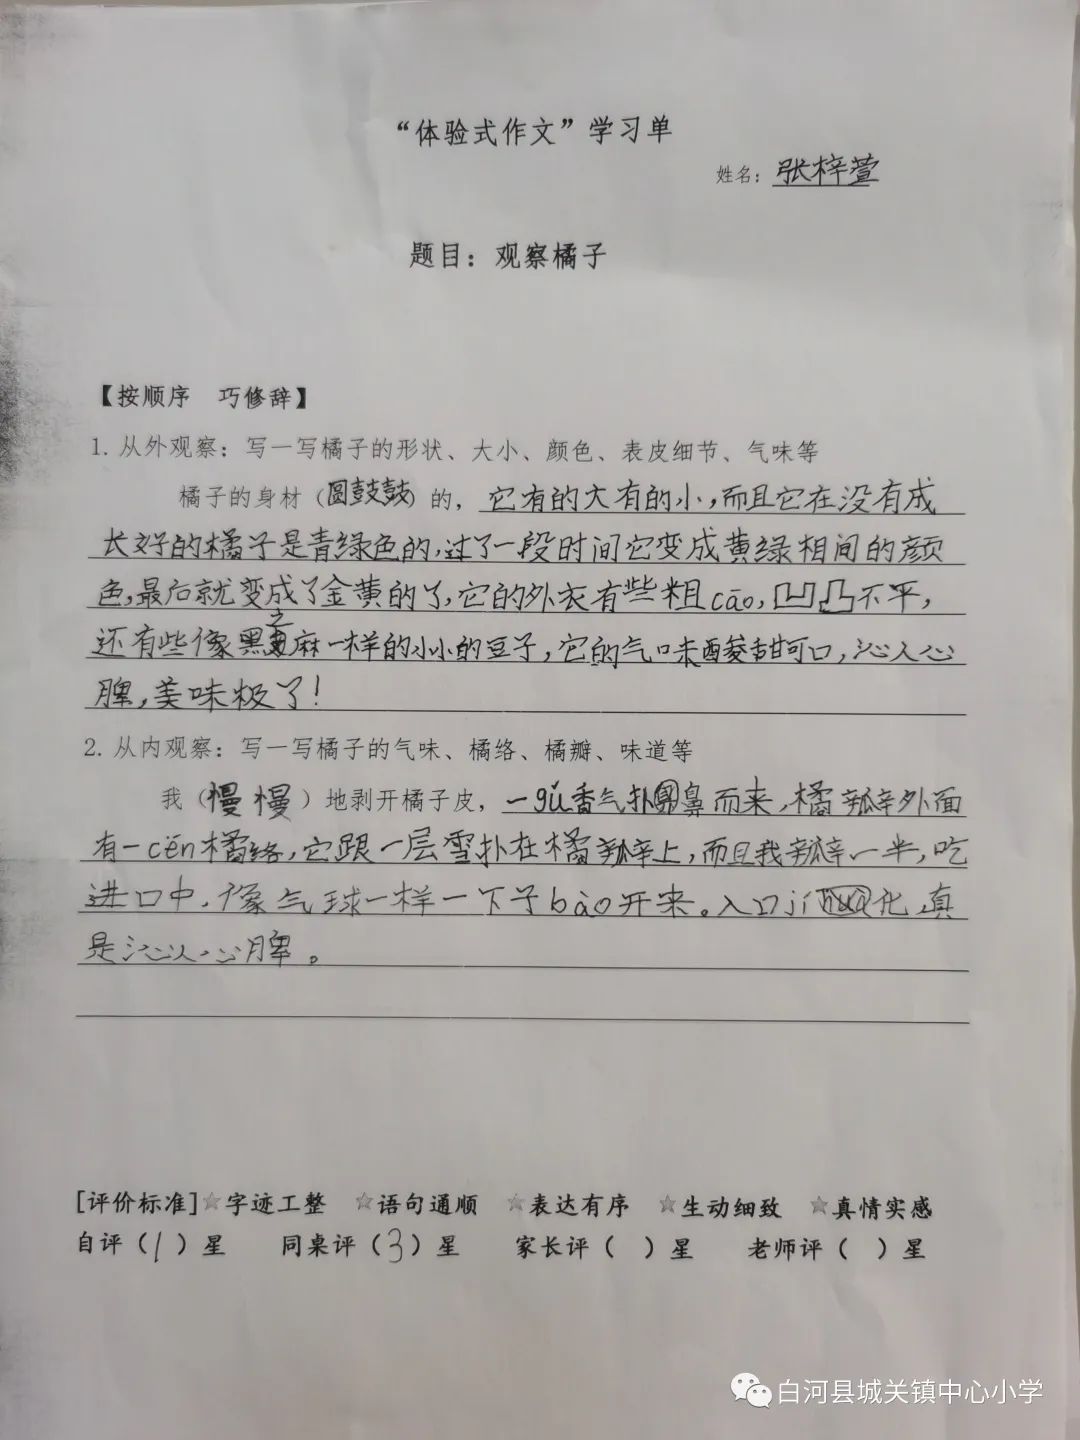 “体验式作文”学习单
姓名：张梓萱
题目：观察橘子
【按顺序 巧修辞】
1. 从外观察：写一写橘子的形状、大小、颜色、表皮细节、气味等
橘子的身材（圆鼓鼓）的，它有的大有的小，而且它在没有成
长好的橘子是青绿色的，过了一段时间它变成黄绿相间的颜
色，最后就变成了金黄的了，它的外衣有些粗cāo，凹凸不平，
还有些像黑芝麻一样的小小的豆子，它的气味酸甜可口，沁人心
脾，美味极了！
2. 从内观察：写一写橘子的气味、橘络、橘瓣、味道等
我（慢慢）地剥开橘子皮，一gǔ香气扑鼻而来，橘瓣外面
有一cén橘络，它跟一层雪扑在橘瓣上，而且我瓣一半，吃
进口中，像气球一样一下子bào开来。入口jí化，真
是沁人心脾。
[评价标准]☆字迹工整 ☆语句通顺 ☆表达有序 ☆生动细致 ☆真情实感
自评（1）星 同桌评（3）星 家长评（ ）星 老师评（ ）星
白河县城关镇中心小学